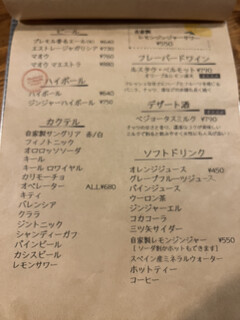 ビール
プレモル香るエール(生) ¥640
エストレージャガリシア ¥730
マオウ ¥750
マオウ マエストラ ¥880
ハイボール
ハイボール ¥640
ジンジャーハイボール ¥750
カクテル
自家製サングリア 赤/白
フィノトニック
オロロッソソーダ
キール
キール ロワイヤル
カリモーチョ
オペレーター ALL¥680
キティ
バレンシア
クララ
ジントニック
シャンディーガフ
パインビール
カシスビール
レモンサワー
自家製
レモンジンジャーサワー
¥750
フレーバードワイン
¥790
デザート酒
ベジョータスミルク ¥790
ソフトドリンク
オレンジジュース ¥450
グレープフルーツジュース
パインジュース
ウーロン茶
ジンジャーエル
コカコーラ
三ツ矢サイダー
自家製レモンジンジャー ¥550
(ソーダ割かホットもできます)
スペイン産ミネラルウォーター
ホットティー
コーヒー